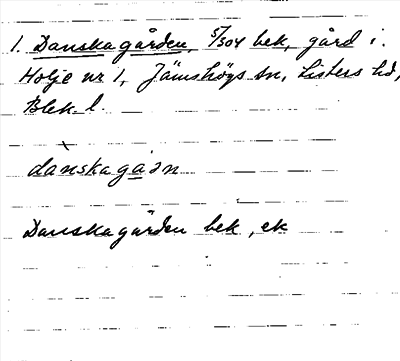 1. Danskagården, 5/304 bek, gård i.
Holje nr 1, Jämshögs sn, Listers hd,
Blek. l.
dànskagaən
Danskagården bek, ek